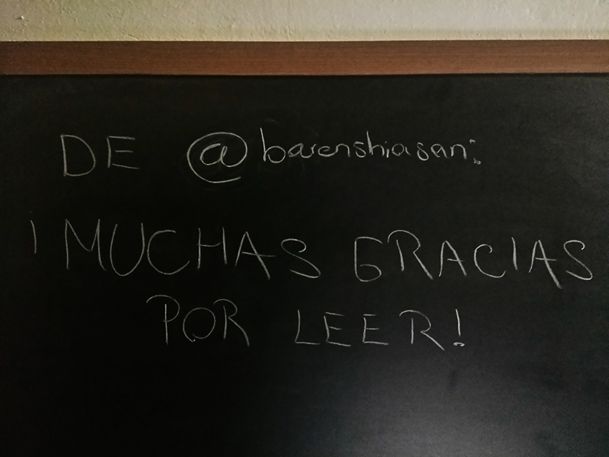 DE @barenshiasan:
¡MUCHAS GRACIAS
POR LEER!